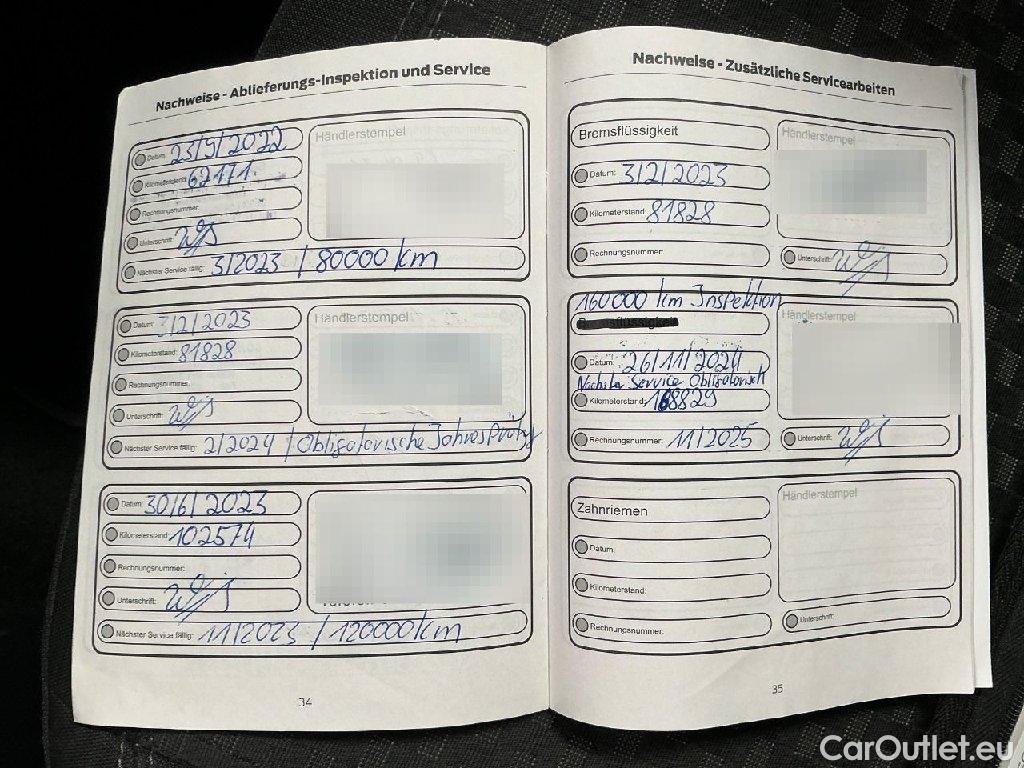 Nachweise - Ablieferungs-Inspektion und Service
Datum: 23/9/2022
Händlerstempel
Kilometerstand: 62171.
Rechnungsnummer:
Unterschrift:
Nächster Service fällig: 3/2023 / 80000 km
Datum: 3/2/2023
Händlerstempel
Kilometerstand: 81828
Rechnungsnummer:
Unterschrift:
Nächster Service fällig: 2/2024 / Obligatorische
Datum: 30/6/2023
Kilometerstand: 102574
Rechnungsnummer:
Unterschrift:
Nächster Service fällig: 11/2023 / 120000 km
34
Nachweise - Zusätzliche Servicearbeiten
Bremsflüssigkeit
Händlerstempel
Datum: 3/2/2023
Kilometerstand: 81828
Rechnungsnummer:
Unterschrift:
160000 km Inspektion
Händlerstempel
Datum: 26/11/2024
Nächster Service Obligatorisch
Kilometerstand: 168829
Rechnungsnummer: 11/2025
Unterschrift:
Zahnriemen
Händlerstempel
Datum:
Kilometerstand:
Rechnungsnummer:
Unterschrift:
35
CarOutlet.eu